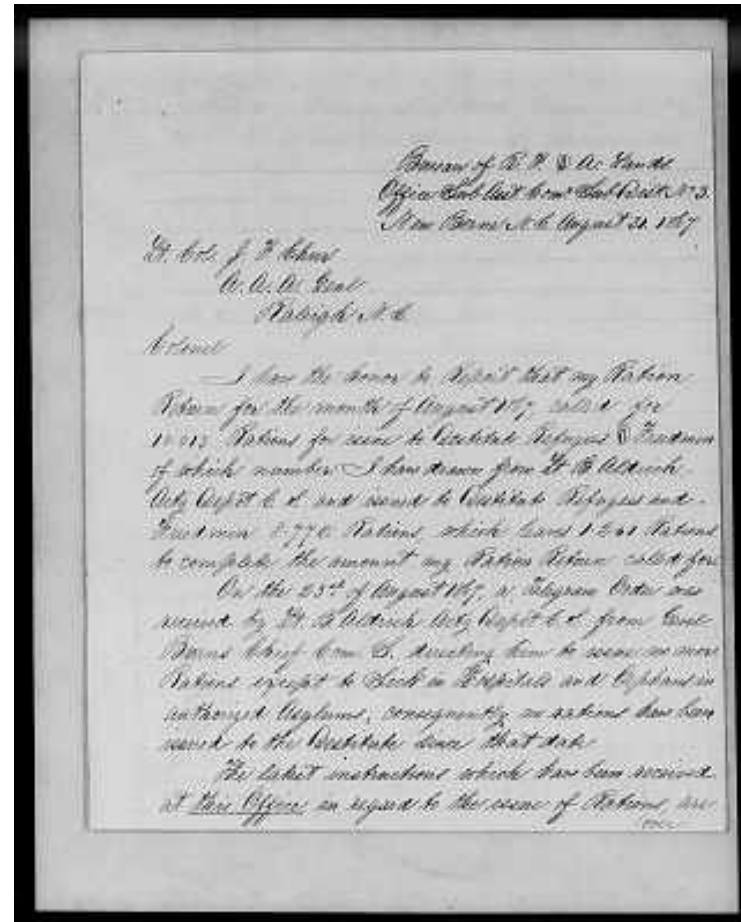 Bureau of R. F. & A. Lands
Office Sub Asst Com Sub Dist No 3.
New Berne N. C. August 31. 1867
Lt. Col. J. F. Chur
A. A. A. Genl
Raleigh N. C.
Colonel
I have the honor to Report that my Ration
Return for the month of August 1867, called for
Rations for issue to Destitute Refugees & Freedmen
of which number I have drawn from Lt B Aldrich
Actg Depot C. S. and issued to Destitute Refugees and
Freedmen Rations, which leaves Rations
to complete the amount my Ration Return called for.
On the 23rd of August 1867, a Telegram Order was
received by Lt B Aldrich Actg Depot C. S. from Genl
Burns Chief Com. S. directing him to issue no more
Rations except to Sick in Hospitals and Orphans in
authorized Asylums, consequently no rations have been
issued to the Destitute since that date.
The latest instructions which have been received
at this Office in regard to the issue of Rations are
(over